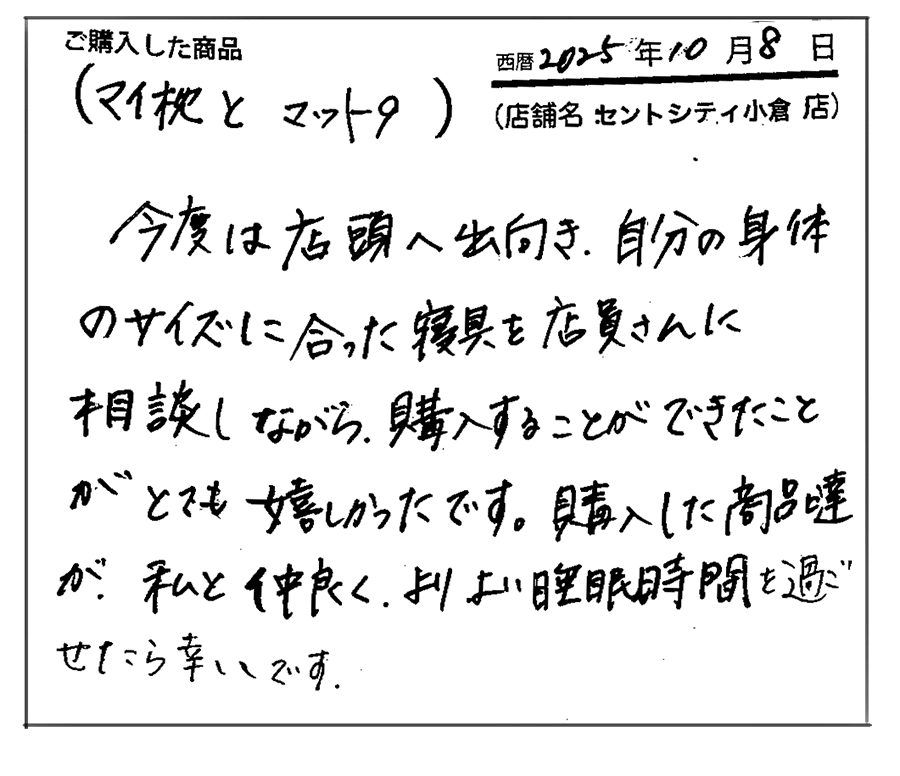 ご購入した商品
西暦2025年10月8日
(マイ枕とマット9)
(店舗名 セントシティ小倉店)
今度は店頭へ出向き、自分の身体
のサイズに合った寝具を店員さんに
相談しながら、購入することができたこと
がとても嬉しかったです。購入した商品達
が、私と仲良く、よりよい睡眠時間を過ご
せたら幸いです.